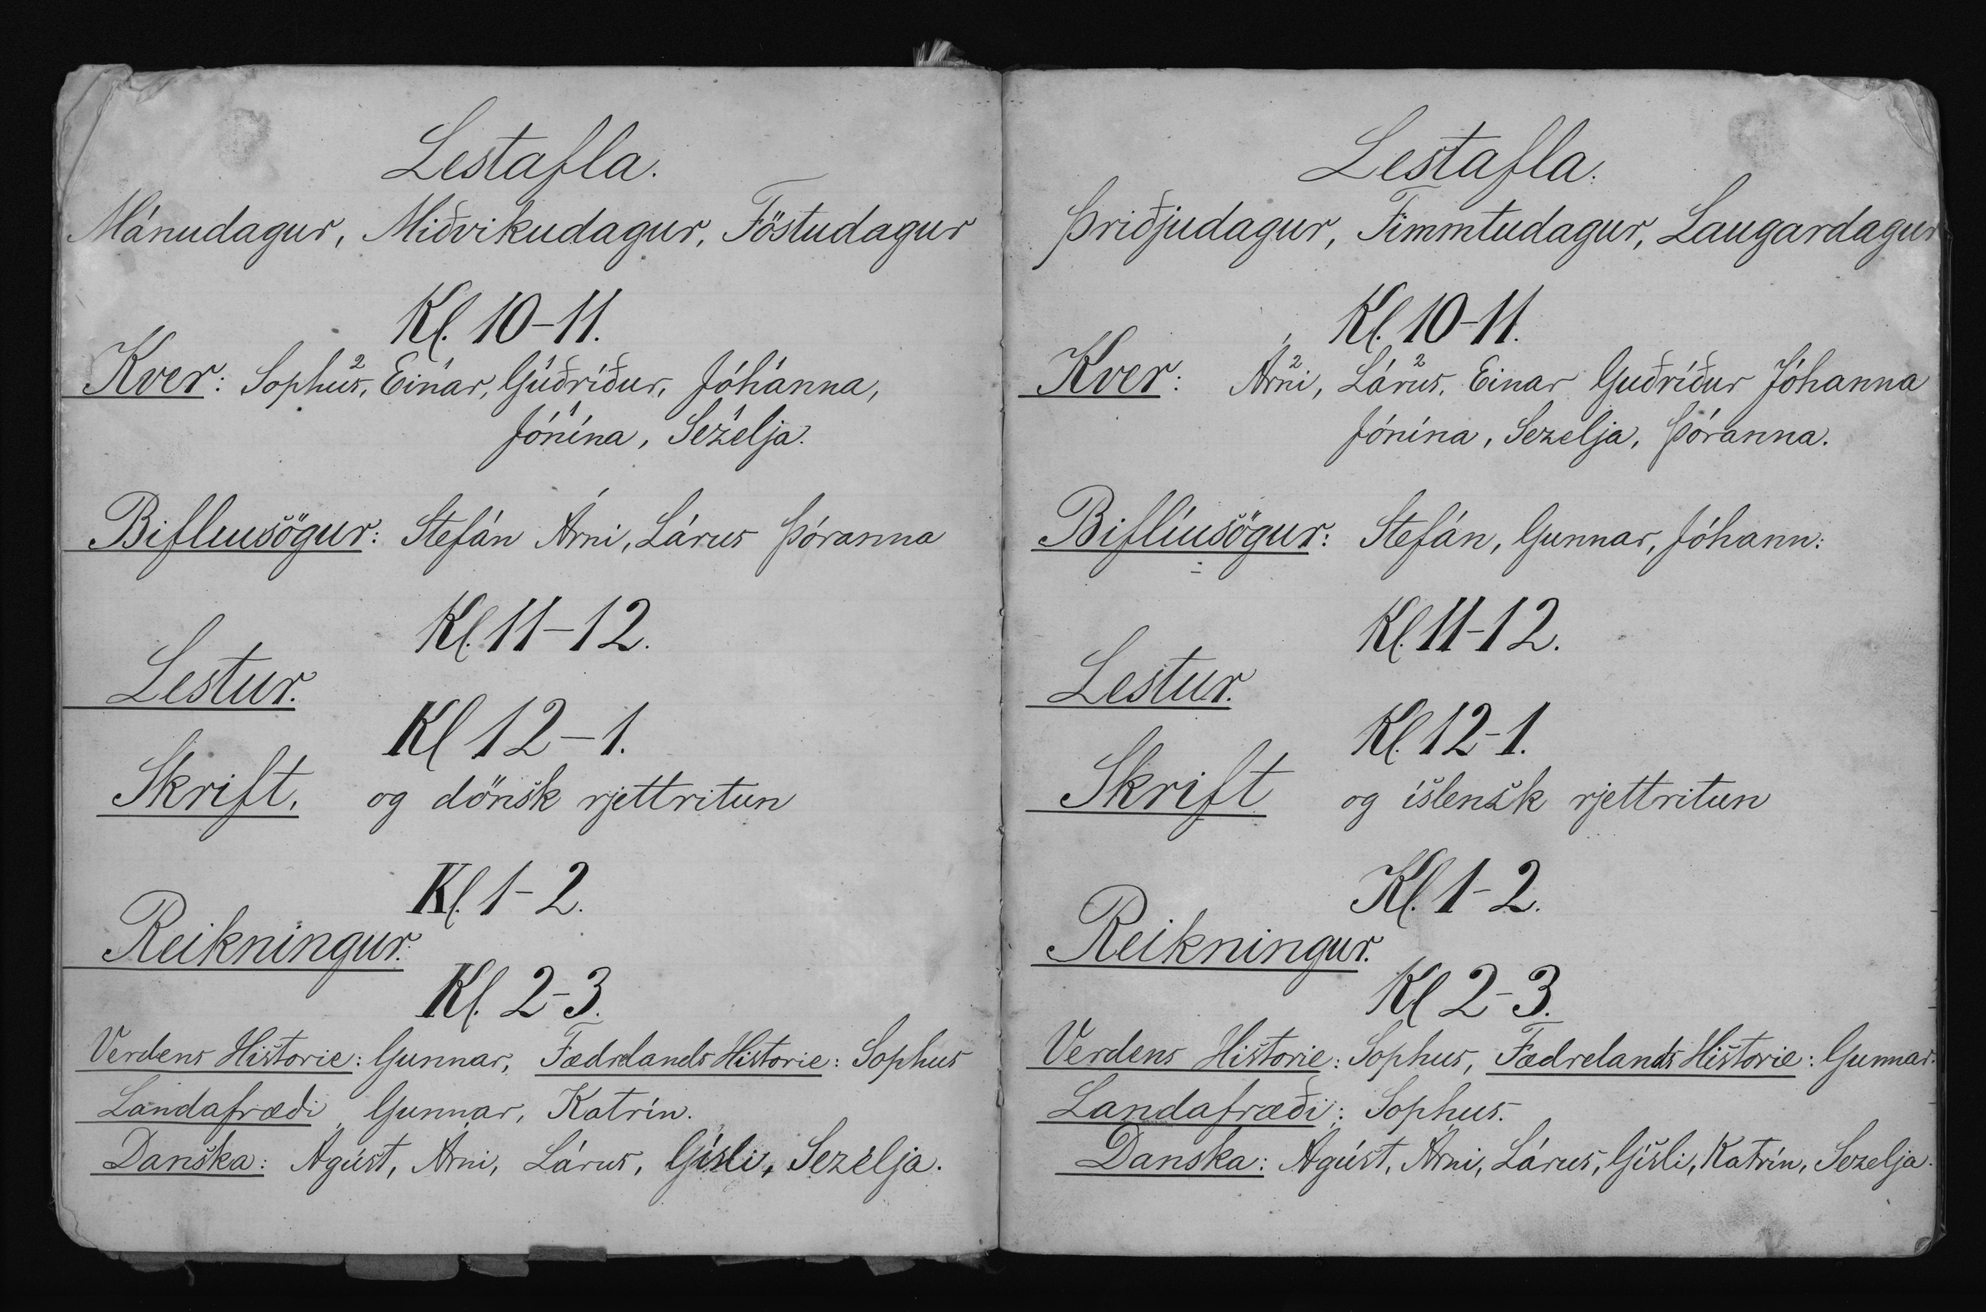 Lestafla.
Mánudagur, Miðvikudagur, Föstudagur
Kl. 10-11.
Kver: Sophus, Einar, Guðríður, Jóhanna,
Jónína, Sezelja.
Bifliusögur: Stefán Árni, Lárus Þóranna
Kl. 11-12.
Lestur.
Kl 12-1.
Skrift. og dönsk rjettritun
Kl. 1-2.
Reikningur.
Kl. 2-3.
Verdens Historie: Gunnar, Fædrelands Historie: Sophus
Landafræði Gunnar, Katrín.
Danska: Agúst, Árni, Lárus, Gísli, Sezelja.
Lestafla.
Þriðjudagur, Fimmtudagur, Laugardagur
Kl. 10-11.
Kver: Árni, Lárus, Einar Guðríður Jóhanna
Jónína, Sezelja, Þóranna.
Biflíusögur: Stefán, Gunnar, Jóhann:
Kl. 11-12.
Lestur.
Kl. 12-1.
Skrift og íslensk rjettritun
Kl. 1-2.
Reikningur.
Kl 2-3.
Verdens Historie: Sophus, Fædrelands Historie: Gunnar.
Landafræði: Sophus.
Danska: Agúst, Árni, Lárus, Gísli, Katrín, Sezelja.